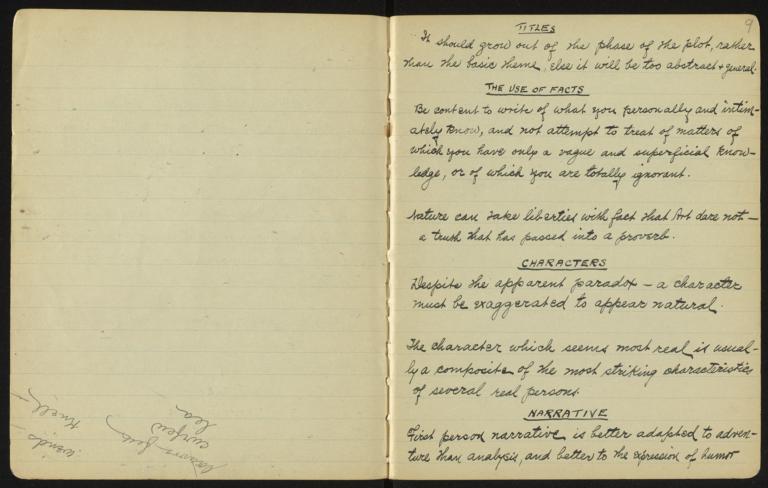 winds –
knell –
curfew
lea
9
TITLES
It should grow out of the phase of the plot, rather
than the basic theme, else it will be too abstract + general.
THE USE OF FACTS
Be content to write of what you personally and intim-
ately know, and not attempt to treat of matters of
which you have only a vague and superficial know-
ledge, or of which you are totally ignorant.
Nature can take liberties with fact that Art dare not –
a truth that has passed into a proverb.
CHARACTERS
Despite the apparent paradox – a character
must be exaggerated to appear natural.
The character which seems most real is usual-
ly a composite of the most striking characteristics
of several real persons.
NARRATIVE
First person narrative is better adapted to adven-
ture than analysis, and better to the expression of humor